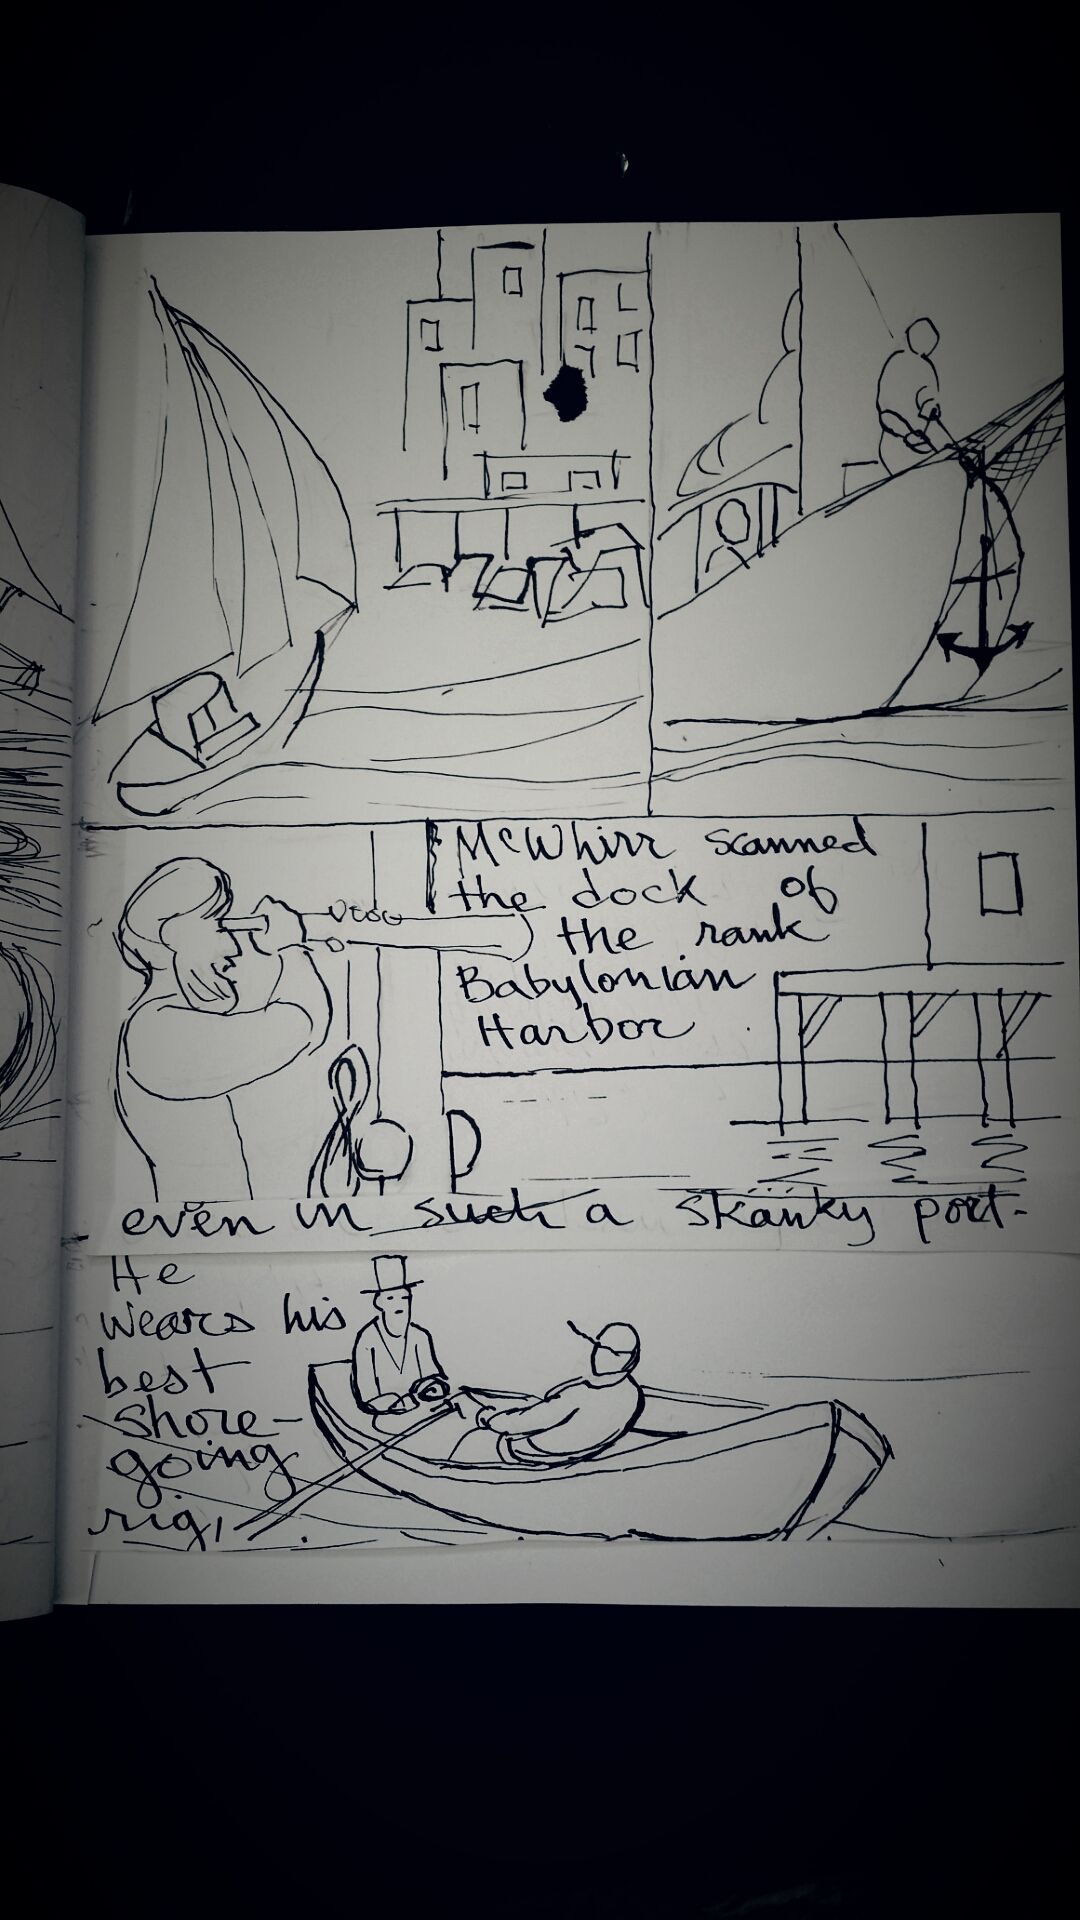 McWhirr scanned
the dock of
the rank
Babylonian
Harbor
even in such a skanky port-
He
wears his
best
shore-
going
rig,